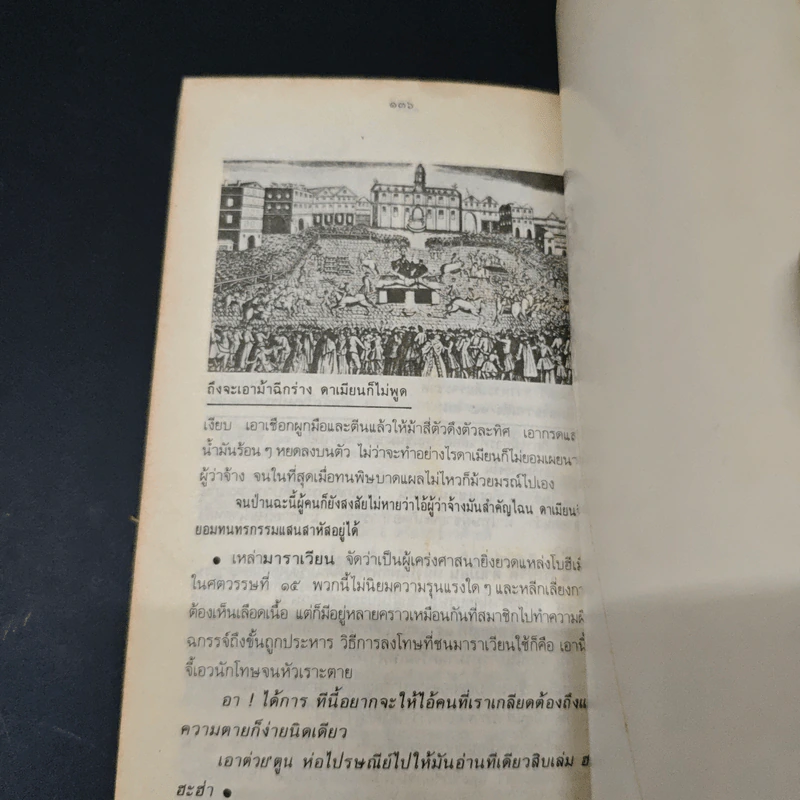 ๑๓๖
ถึงจะเอาม้าฉีกร่าง ดาเมียนก็ไม่พูด
เงียบ เอาเชือกผูกมือและตีนแล้วให้ม้าสี่ตัวดึงตัวละทิศ เอากรดแล
น้ำมันร้อนๆ หยดลงบนตัว ไม่ว่าจะทำอย่างไรดาเมียนก็ไม่ยอมเผยนา
ผู้ว่าจ้าง จนในที่สุดเมื่อทนพิษบาดแผลไม่ไหวก็ม้วยมรณ์ไปเอง
จนป่านฉะนี้ผู้คนก็ยังสงสัยไม่หายว่าไอ้ผู้ว่าจ้างมันสำคัญไฉน ดาเมียน
ยอมทนทรกรรมแสนสาหัสอยู่ได้
● เหล่ามาราเวียน จัดว่าเป็นผู้เคร่งศาสนายิ่งยวดแหล่งโบฮีเมี
ในศตวรรษที่ ๑๕ พวกนี้ไม่นิยมความรุนแรงใดๆ และหลีกเลี่ยงกา
ต้องเห็นเลือดเนื้อ แต่ก็มีอยู่หลายคราวเหมือนกันที่สมาชิกไปทำความผิ
ฉกรรจ์ถึงขั้นถูกประหาร วิธีการลงโทษที่ชนมาราเวียนใช้ก็คือ เอานิ้
จี้เอวนักโทษจนหัวเราะตาย
อา ! ได้การ ทีนี้อยากจะให้ไอ้คนที่เราเกลียดต้องถึงแ
ความตายก็ง่ายนิดเดียว
เอาต่วย'ตูน ห่อไปรษณีย์ไปให้มันอ่านทีเดียวสิบเล่ม ฮ
ฮะฮ่า ●